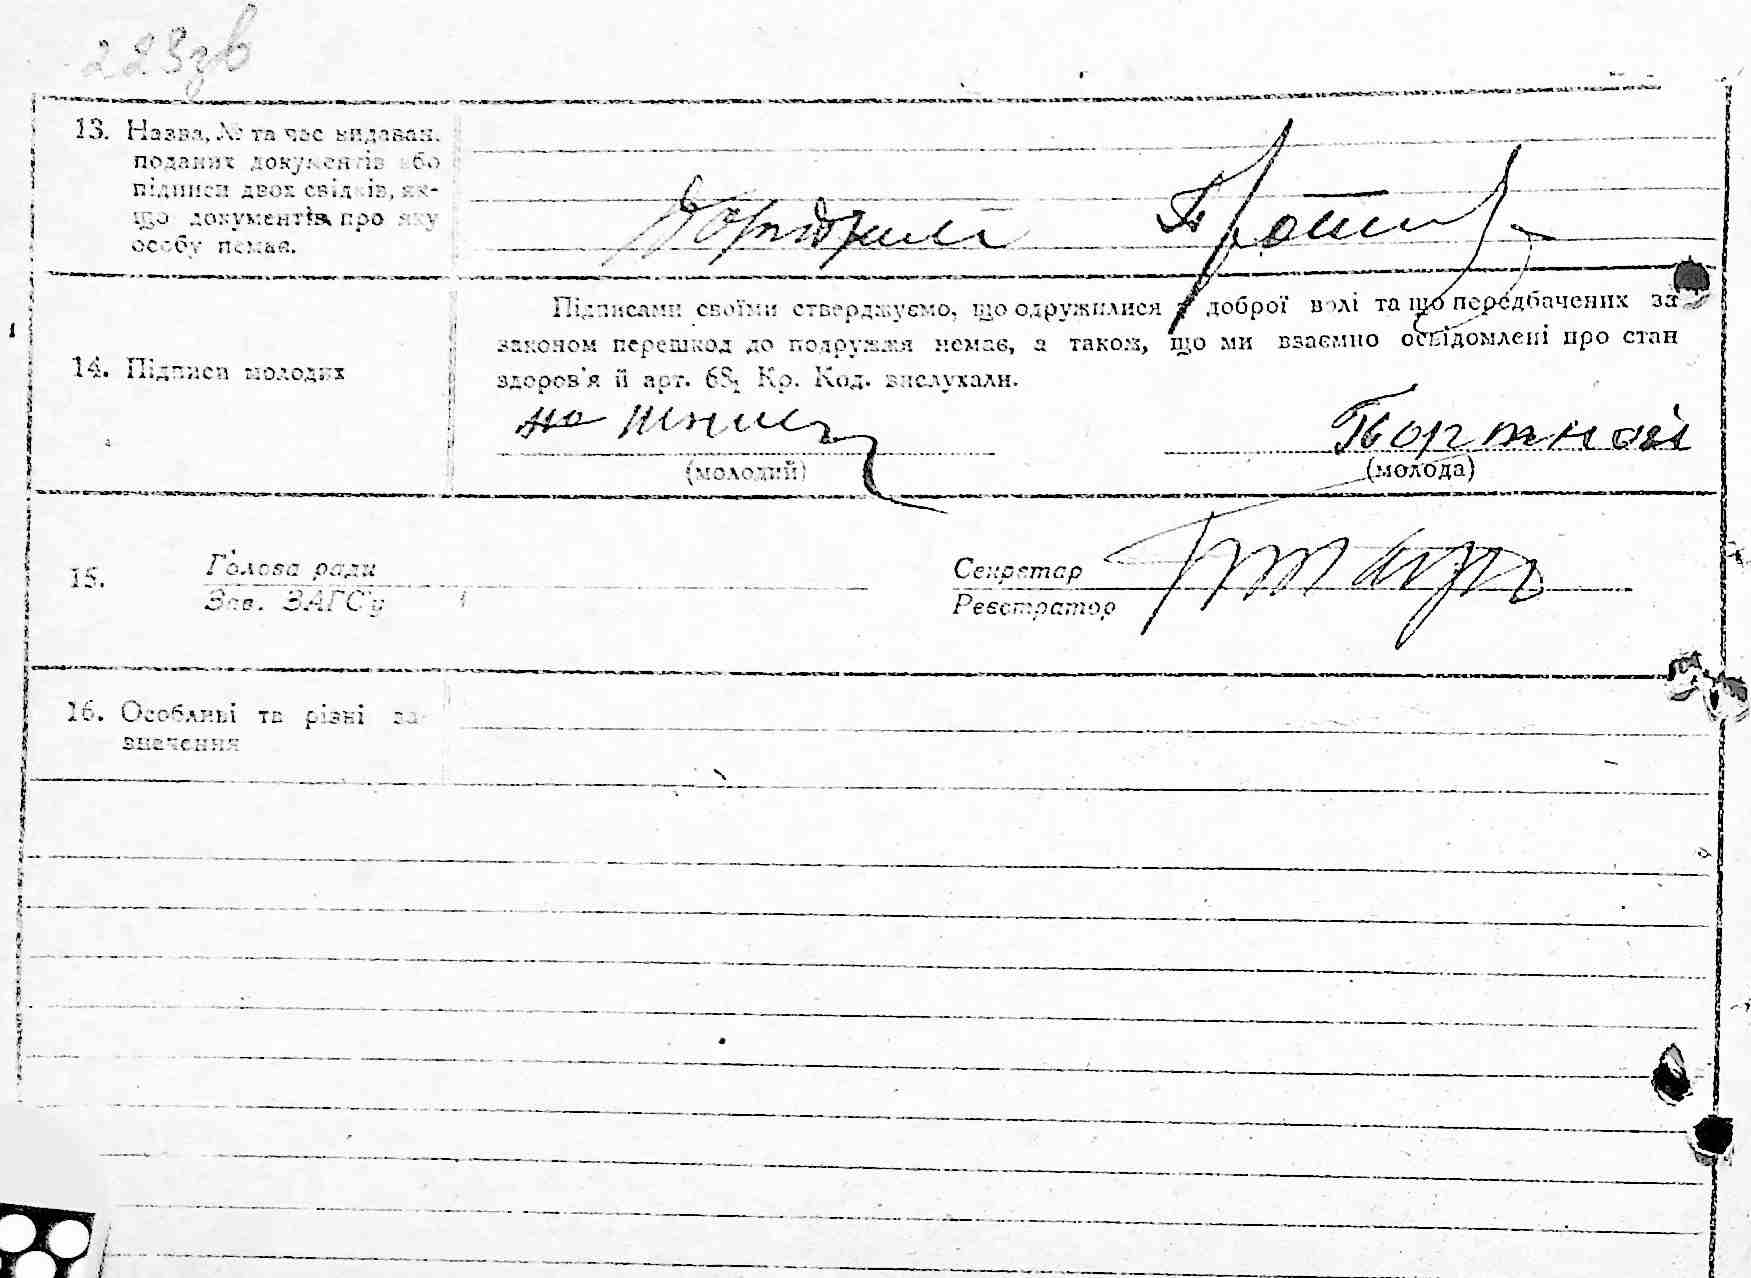 223зв
13. Назва, № та час видаван.
поданих документів або
підписи двох свідків, як-
що документів про яку
особу немає.
14. Підписи молодих
Підписами своїми стверджуємо, що одружилися з доброї волі та що передбачених за
законом перешкод до подружжя немає, а також, що ми взаємно освідомлені про стан
здоров'я й арт. 68, Кр. Код. вислухали.
(молодий)
(молода)
15.
Голова ради
Зав. ЗАГС'у
Секретар
Реєстратор
16. Особливі та різні за-
значення